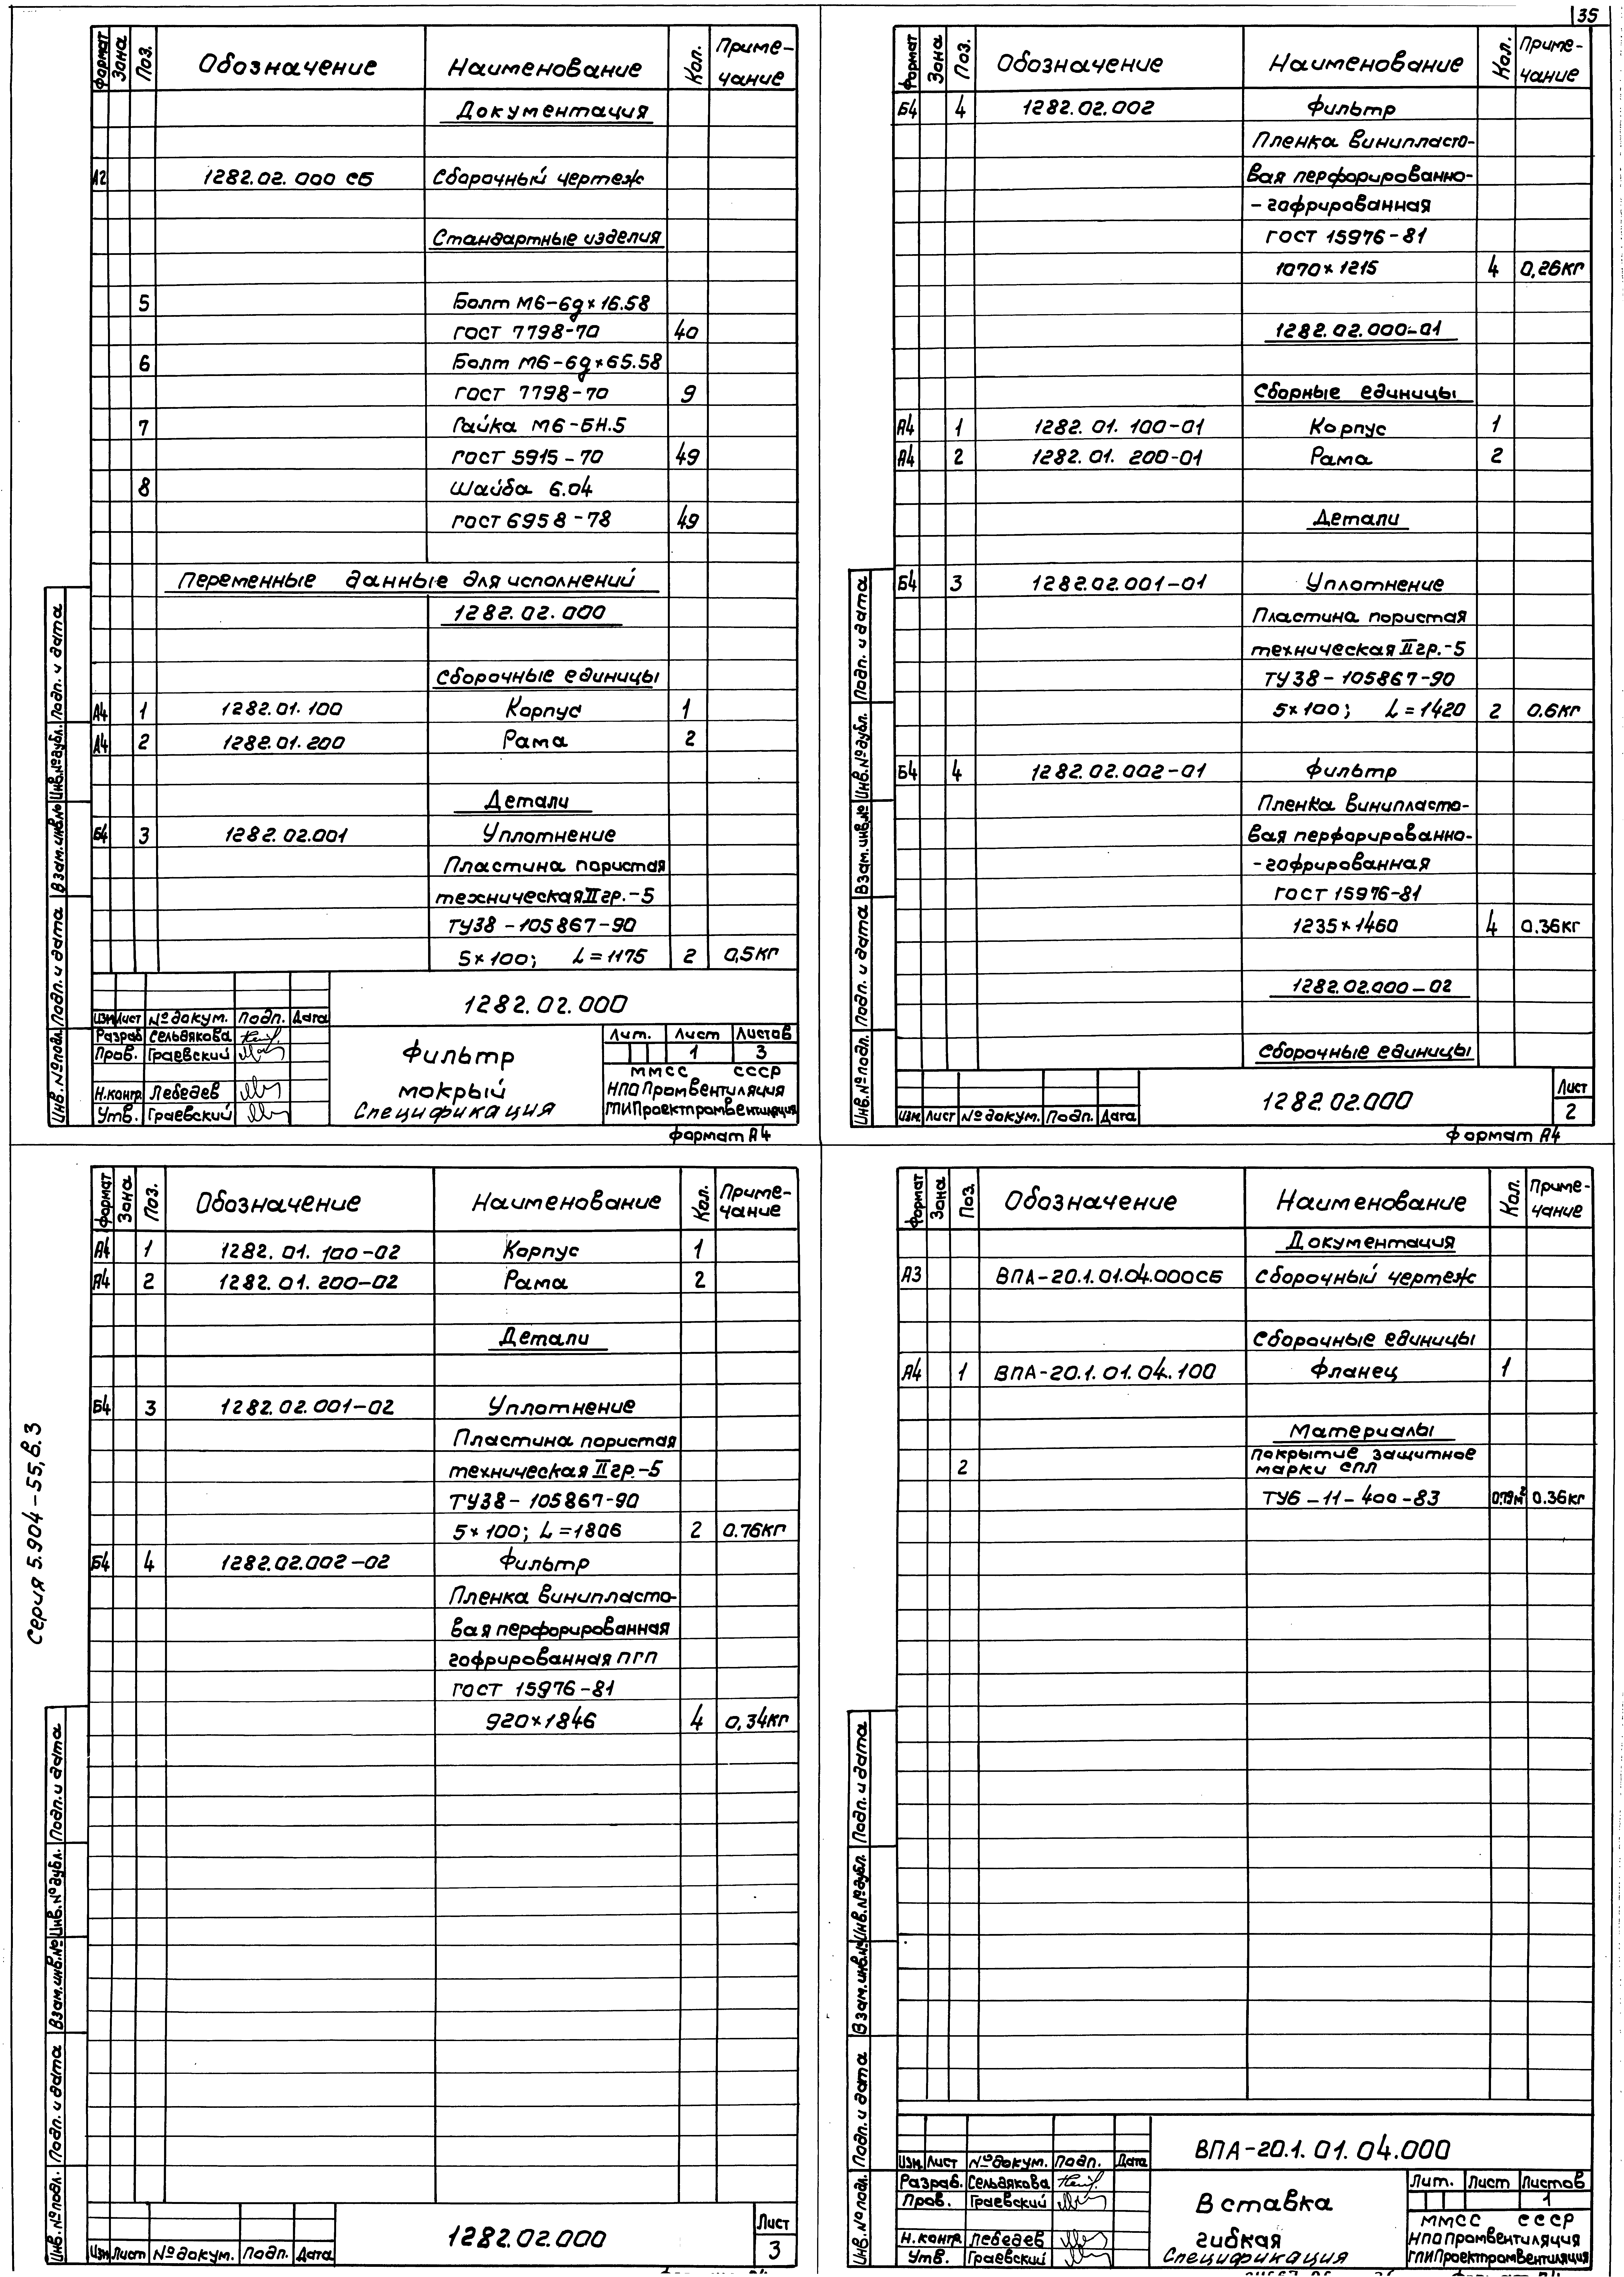 35
Формат Зона Поз. Обозначение Наименование Кол. Приме-
чание
Документация
А2 1282.02.000 СБ Сборочный чертеж
Стандартные изделия
5 Болт М6-6g×16.58
ГОСТ 7798-70 40
6 Болт М6-6g×65.58
ГОСТ 7798-70 9
7 Гайка М6-БН.5
ГОСТ 5915-70 49
8 Шайба 6.04
ГОСТ 6958-78 49
Переменные данные для исполнений
1282.02.000
Сборочные единицы
А4 1 1282.01.100 Корпус 1
А4 2 1282.01.200 Рама 2
Детали
Б4 3 1282.02.001 Уплотнение
Пластина пористая
техническая II гр.-5
ТУ38-105867-90
5×100; L=1175 2 0,5кг
1282.02.000
Изм Лист № докум. Подп. Дата
Разраб Сельвякова
Пров. Граевский
Н.контр. Лебедев
Утв. Граевский
Фильтр
мокрый
Спецификация
Лит. Лист Листов
1 3
ММСС СССР
НПО Промвентиляция
ГПИ Проектпромвентиляция
Формат А4
Инв. № подл. Подп. и дата Взам. инв. № Инв. № дубл. Подп. и дата
Формат Зона Поз. Обозначение Наименование Кол. Приме-
чание
Б4 4 1282.02.002 Фильтр
Пленка винипласто-
вая перфорированно-
-гофрированная
ГОСТ 15976-81
1070×1215 4 0,26кг
1282.02.000-01
Сборные единицы
А4 1 1282.01.100-01 Корпус 1
А4 2 1282.01.200-01 Рама 2
Детали
Б4 3 1282.02.001-01 Уплотнение
Пластина пористая
техническая II гр.-5
ТУ38-105867-90
5×100; L=1420 2 0.6кг
Б4 4 1282.02.002-01 Фильтр
Пленка винипласто-
вая перфорированно-
-гофрированная
ГОСТ 15976-81
1235×1460 4 0.36кг
1282.02.000-02
Сборочные единицы
Изм Лист № докум. Подп. Дата
1282.02.000
Лист
2
Формат А4
Инв. № подл. Подп. и дата Взам. инв. № Инв. № дубл. Подп. и дата
Серия 5.904-55, в.3
Формат Зона Поз. Обозначение Наименование Кол. Приме-
чание
А4 1 1282.01.100-02 Корпус 1
А4 2 1282.01.200-02 Рама 2
Детали
Б4 3 1282.02.001-02 Уплотнение
Пластина пористая
техническая II гр.-5
ТУ38-105867-90
5×100; L=1806 2 0.76кг
Б4 4 1282.02.002-02 Фильтр
Пленка винипласто-
вая перфорированная
гофрированная ПГП
ГОСТ 15976-81
920×1846 4 0,34кг
Изм Лист № докум. Подп. Дата
1282.02.000
Лист
3
Инв. № подл. Подп. и дата Взам. инв. № Инв. № дубл. Подп. и дата
Формат Зона Поз. Обозначение Наименование Кол. Приме-
чание
Документация
А3 ВПА-20.1.01.04.000СБ Сборочный чертеж
Сборочные единицы
А4 1 ВПА-20.1.01.04.100 Фланец 1
Материалы
2 Покрытие защитное
марки СПЛ
ТУ6-11-400-83 0.79м² 0.36кг
ВПА-20.1.01.04.000
Изм Лист № докум. Подп. Дата
Разраб. Сельвякова
Пров. Граевский
Н.контр. Лебедев
Утв. Граевский
Вставка
гибкая
Спецификация
Лит. Лист Листов
1
ММСС СССР
НПО Промвентиляция
ГПИ Проектпромвентиляция
Инв. № подл. Подп. и дата Взам. инв. № Инв. № дубл. Подп. и дата